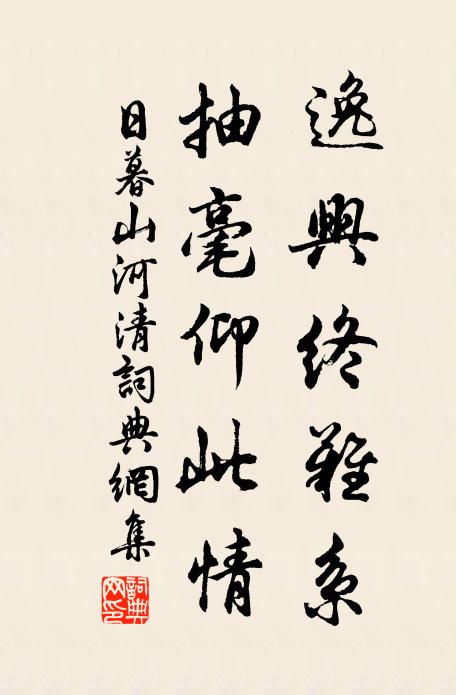 逸興終難系
抽毫仰此情
日暮山河清詞典網集
詞典網印